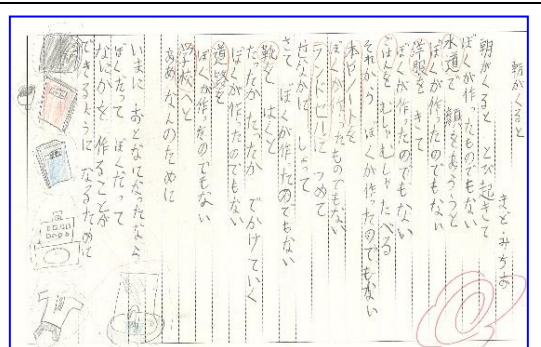 朝がくると
まど・みちお
朝がくると とび起きて
ぼくが作ったものでもない
水道で 顔をあらうと
ぼくが作ったのでもない
洋服を きて
ぼくが作ったのでもない
ごはんを むしゃむしゃ たべる
それから ぼくが作ったのでもない
本やノートを
ぼくが作ったものでもない
ランドセルに つめて
せなかに しょって
さて ぼくが作ったのでもない
靴を はくと
たったか たったか でかけていく
ぼくが作ったのでもない
道路を
ぼくが作ったのでもない
学校へと
ああ なんのために
いまに おとなになったなら
ぼくだって ぼくだって
なにかを 作ることが
できるように なるために